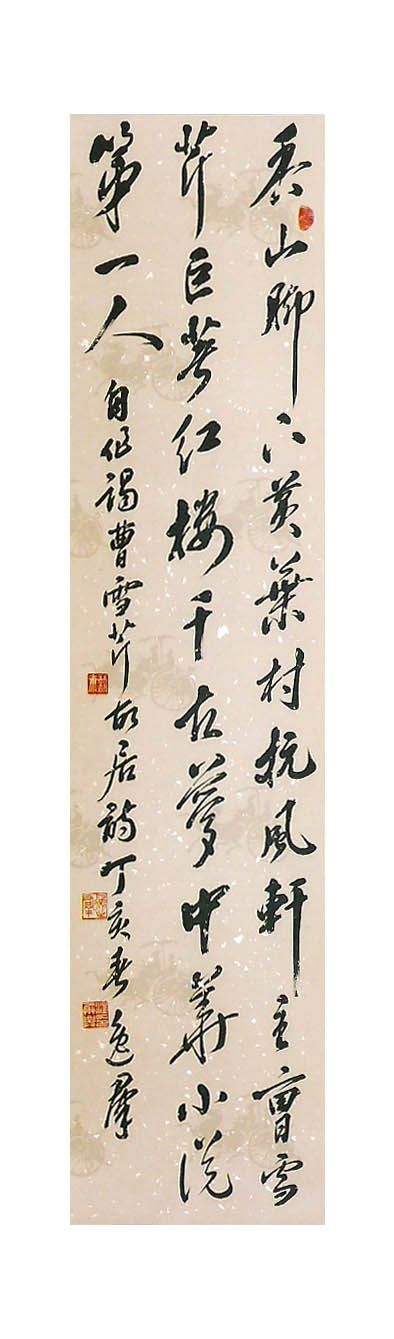 香山脚下黄叶村抗风轩主曹雪
芹巨著红楼千古梦中华小说
第一人
自作谒曹雪芹故居诗丁亥春逸群